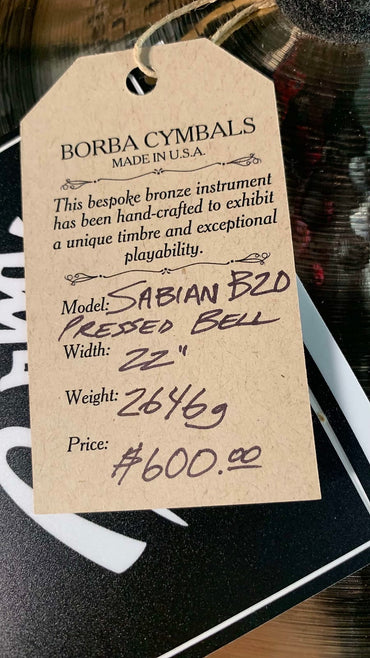 BORBA CYMBALS
MADE IN U.S.A.
This bespoke bronze instrument
has been hand-crafted to exhibit
a unique timbre and exceptional
playability.
Model: SABIAN B20
PRESSED BELL
Width: 22"
Weight: 2646g
Price: $600.00